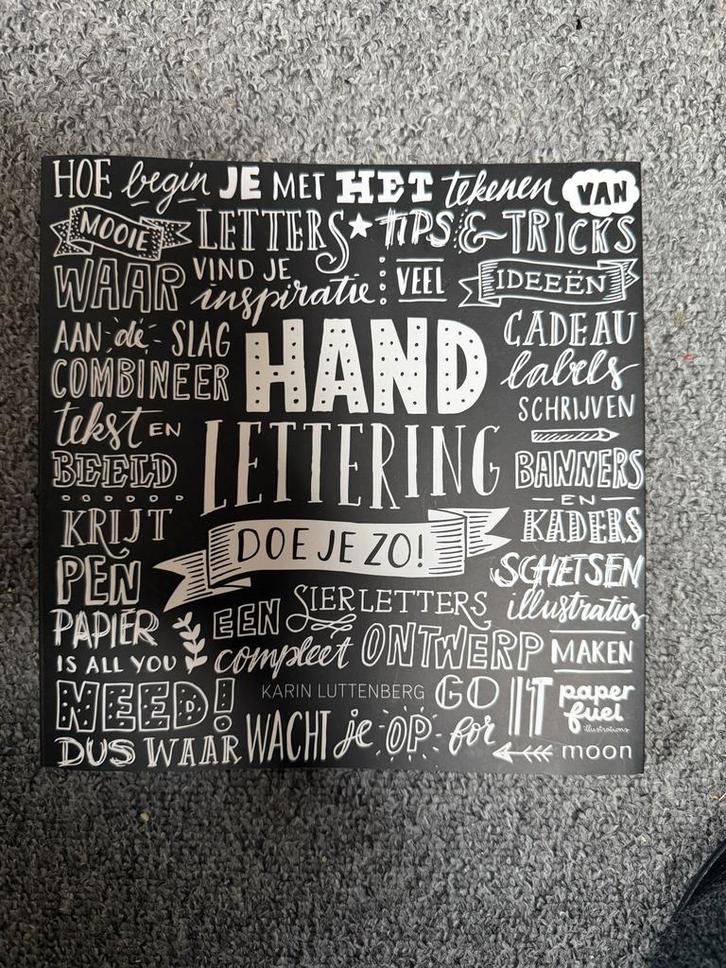 HOE begin JE MET HET tekenen VAN
MOOIE LETTERS TIPS & TRICKS
WAAR VIND JE inspiratie VEEL IDEEËN
AAN de SLAG
COMBINEER
tekst EN
BEELD
KRIJT
PEN
PAPIER
IS ALL YOU
NEED!
HAND
LETTERING
DOE JE ZO!
CADEAU
labels
SCHRIJVEN
BANNERS
EN
KADERS
SCHETSEN
illustraties
EEN SIERLETTERS
compleet ONTWERP MAKEN
KARIN LUTTENBERG GO IT paper fuel
illustrations
DUS WAAR WACHT je OP for moon